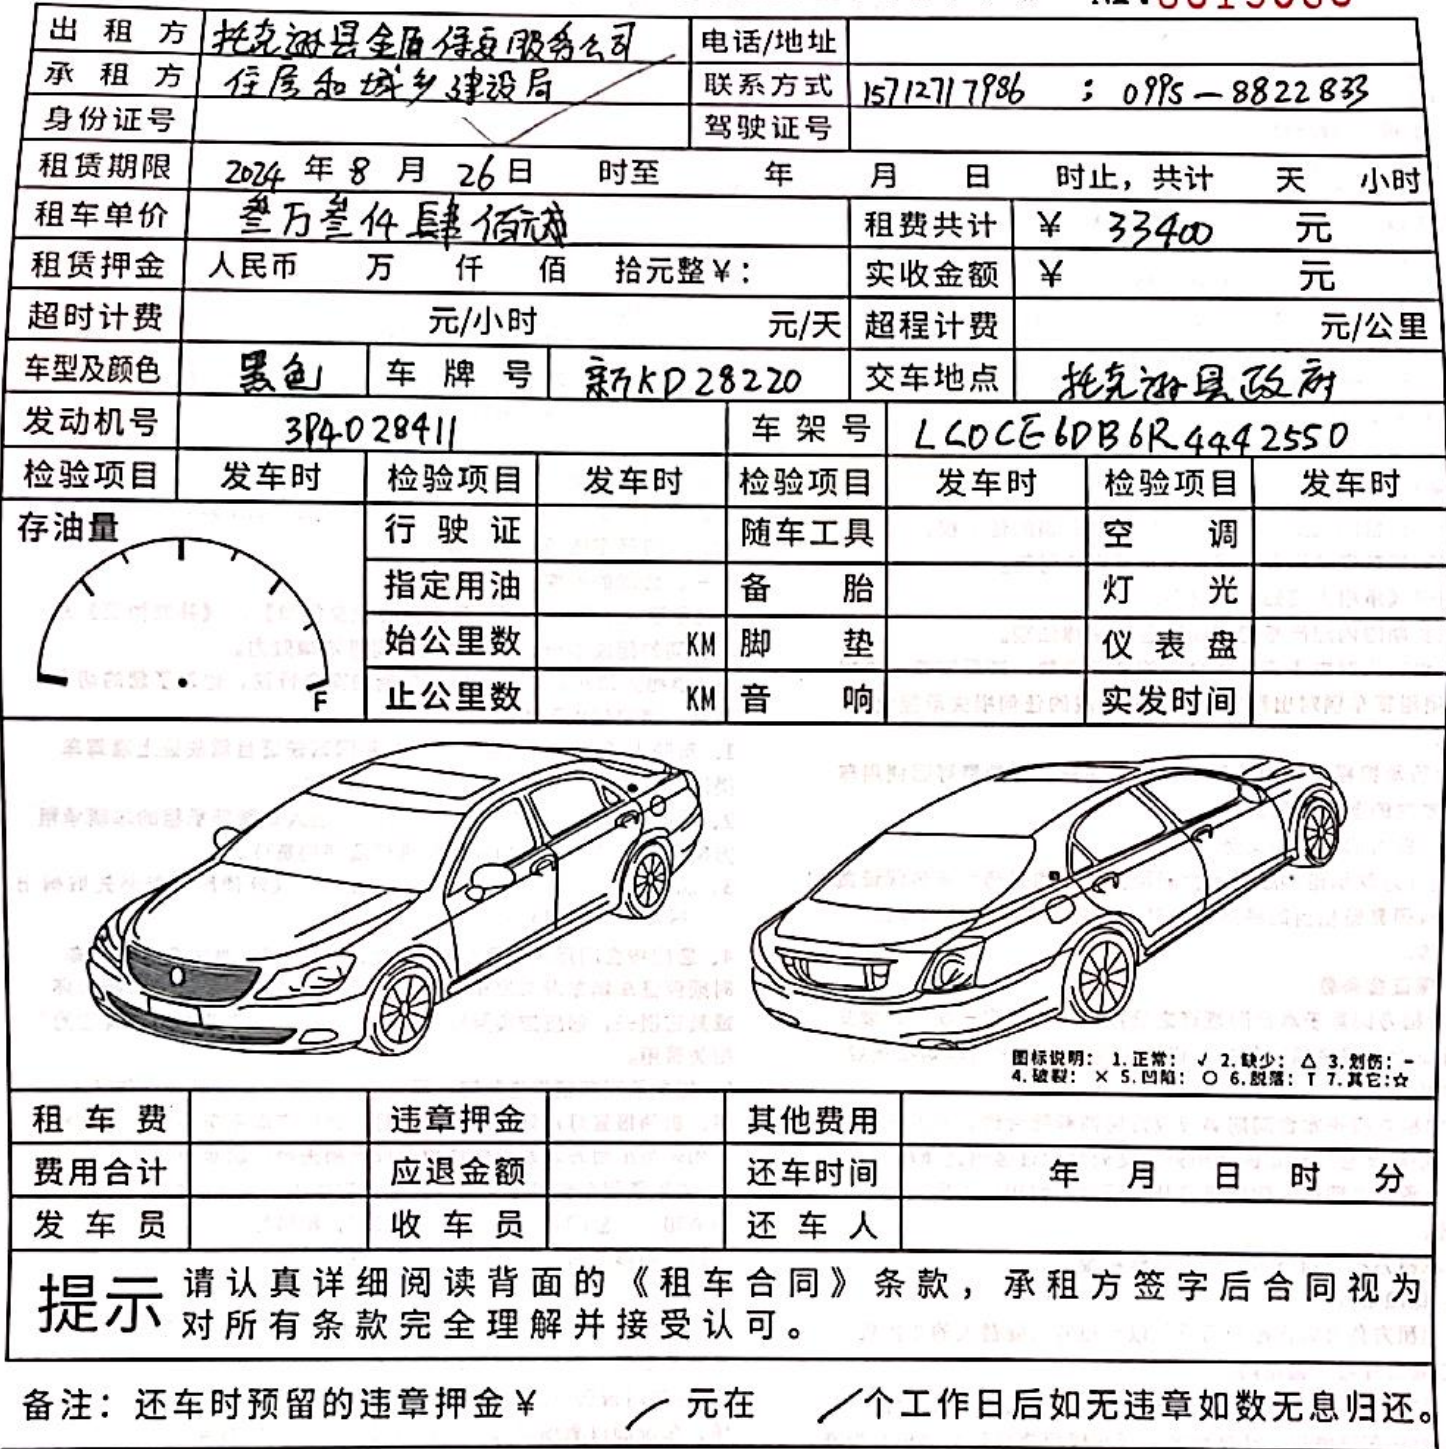 出租方 托克逊县金盾保安服务公司 电话/地址
承租方 住房和城乡建设局 联系方式 15712717986 ; 0995-8822833
身份证号 驾驶证号
租赁期限 2024年8月26日 时至 年 月 日 时止，共计 天 小时
租车单价 叁万叁仟肆佰元整 租费共计 ¥ 33400 元
租赁押金 人民币 万 仟 佰 拾元整¥： 实收金额 ¥ 元
超时计费 元/小时 元/天 超程计费 元/公里
车型及颜色 黑色 车牌号 新KD28220 交车地点 托克逊县政府
发动机号 3P4D28411 车架号 LC0CE6DB6R4442550
检验项目 发车时 检验项目 发车时 检验项目 发车时 检验项目 发车时
存油量 行驶证 随车工具 空调
指定用油 备胎 灯光
始公里数 KM 脚垫 仪表盘
F 止公里数 KM 音响 实发时间
图标说明：1.正常：√ 2.缺少：△ 3.划伤：-
4.破裂：× 5.凹陷：○ 6.脱落：T 7.其它：☆
租车费 违章押金 其他费用
费用合计 应退金额 还车时间 年 月 日 时 分
发车员 收车员 还车人
提示 请认真详细阅读背面的《租车合同》条款，承租方签字后合同视为
对所有条款完全理解并接受认可。
备注：还车时预留的违章押金¥ / 元在 / 个工作日后如无违章如数无息归还。